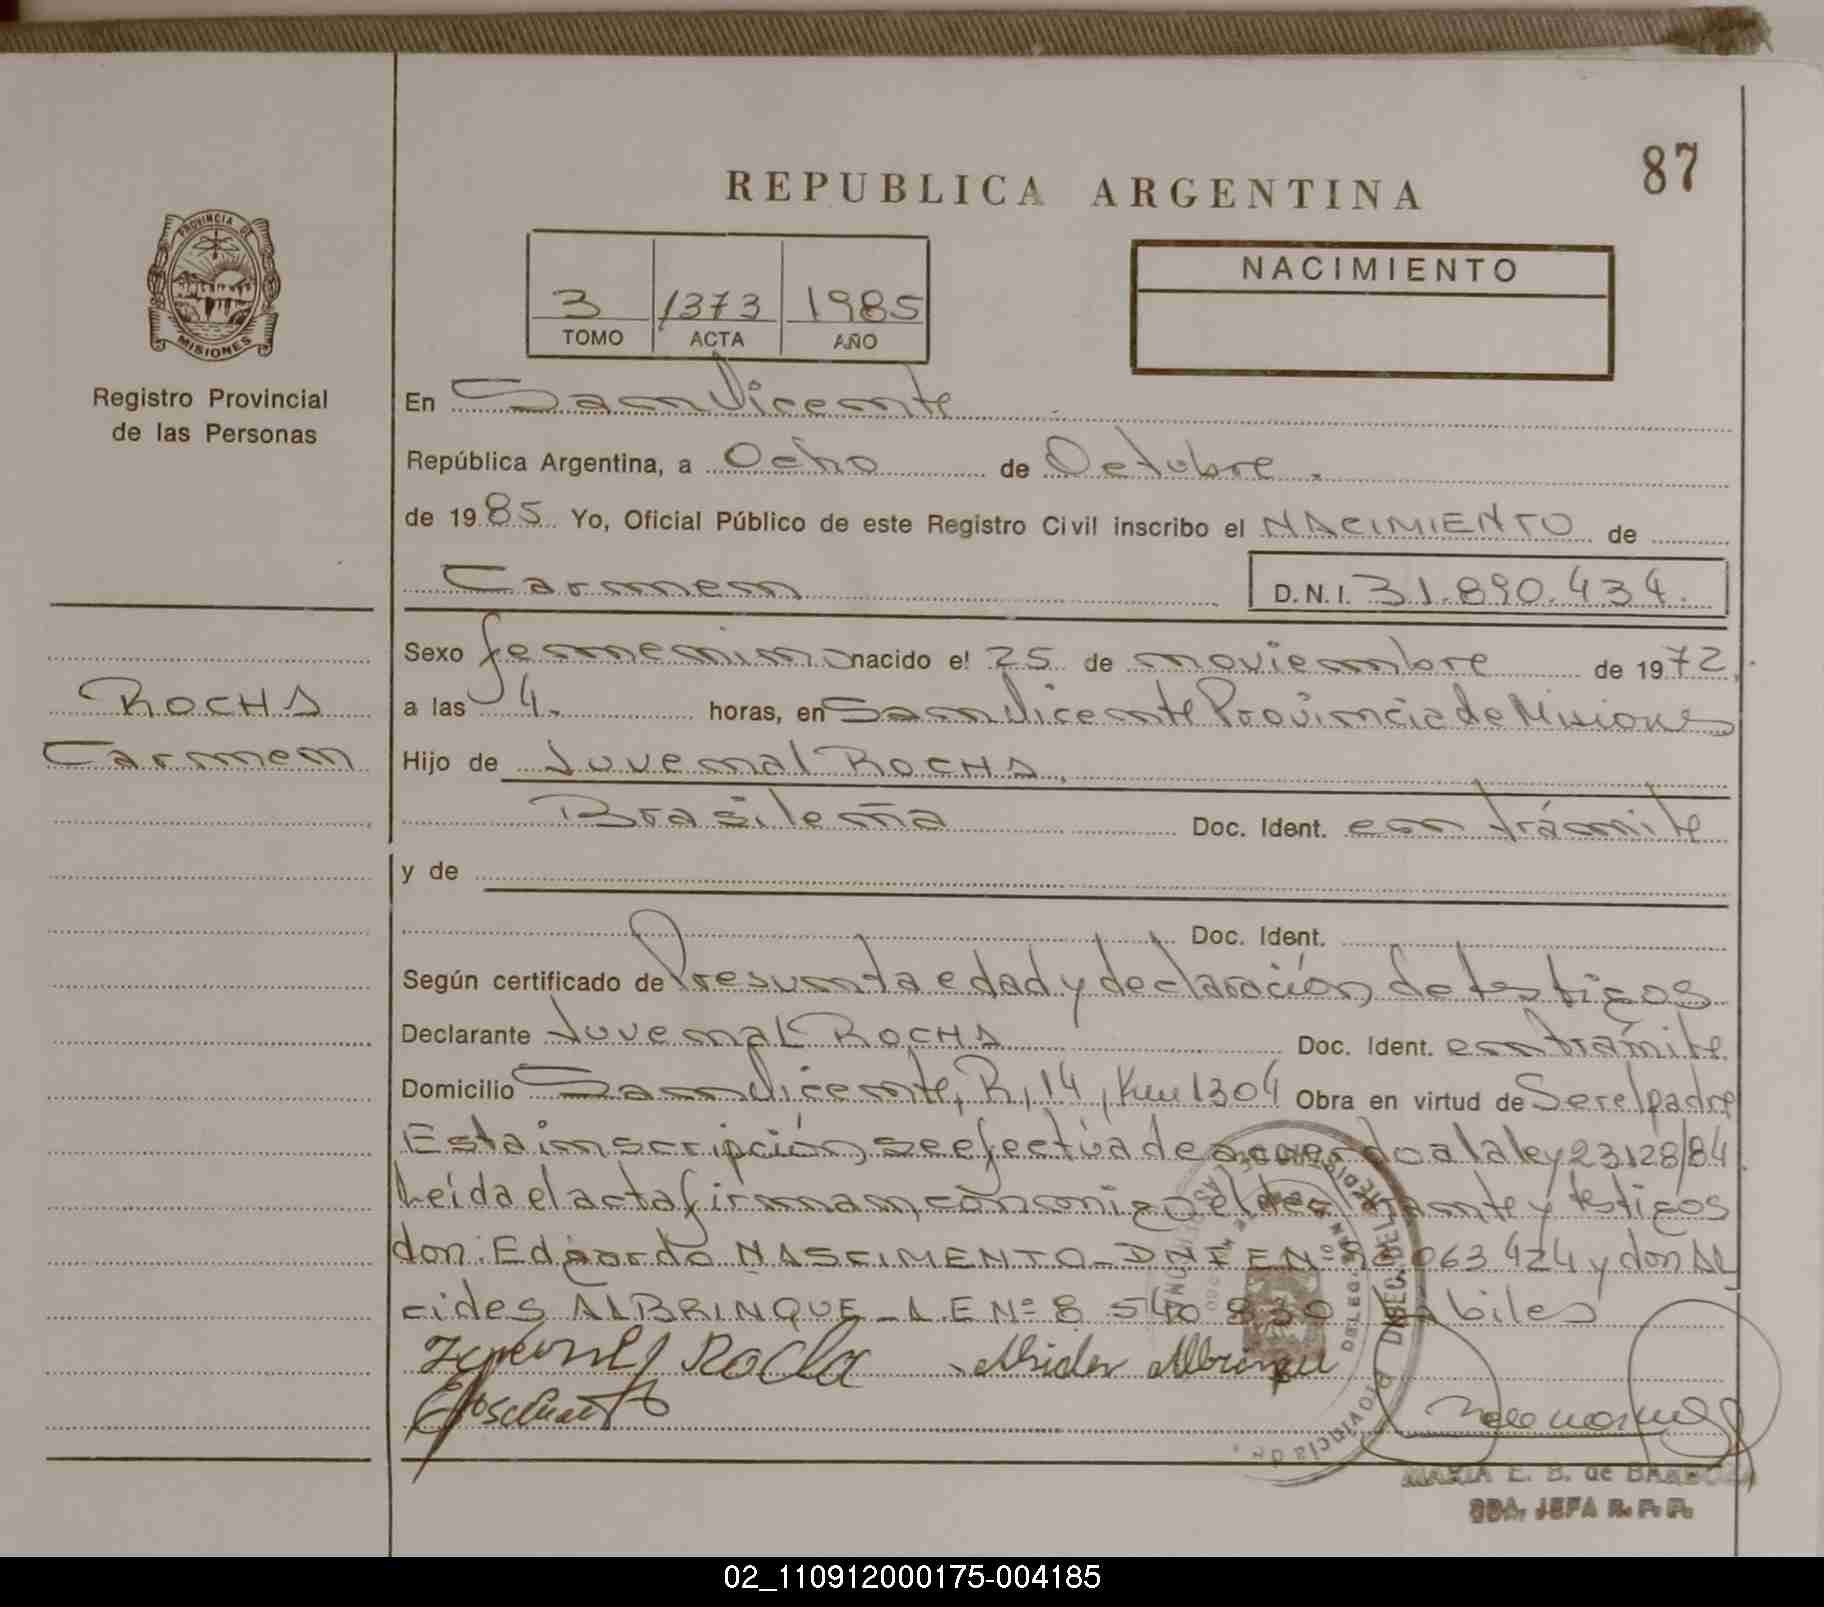 87
REPUBLICA ARGENTINA
PROVINCIA DE
MISIONES
Registro Provincial
de las Personas
3 1373 1985
TOMO ACTA AÑO
NACIMIENTO
En San Vicente
República Argentina, a Ocho de Octubre.
de 1985 Yo, Oficial Público de este Registro Civil inscribo el NACIMIENTO de
Carmen D.N.I. 31.890.434.
ROCHA
Carmen
Sexo femenino nacido el 25 de noviembre de 1972.
a las 4. horas, en San Vicente Provincia de Misiones
Hijo de Juvenal ROCHA.
Brasileña Doc. Ident. en trámite
y de
Doc. Ident.
Según certificado de Presunta edad y declaración de testigos
Declarante Juvenal ROCHA Doc. Ident. en trámite
Domicilio San Vicente, R, 14, Km 1304 Obra en virtud de Ser el padre
Esta inscripción se efectúa de acuerdo a la ley 23.128/84.
Leída el acta firman, con migo el declarante y testigos
don: Edgardo NASCIMENTO - DNI E Nº 063 424 y don AL
cides ALBRINQUE - L.E Nº 8 540 830 hábiles
Rocha
MARIA E. B. de
JEFA R. P. P.
02_110912000175-004185